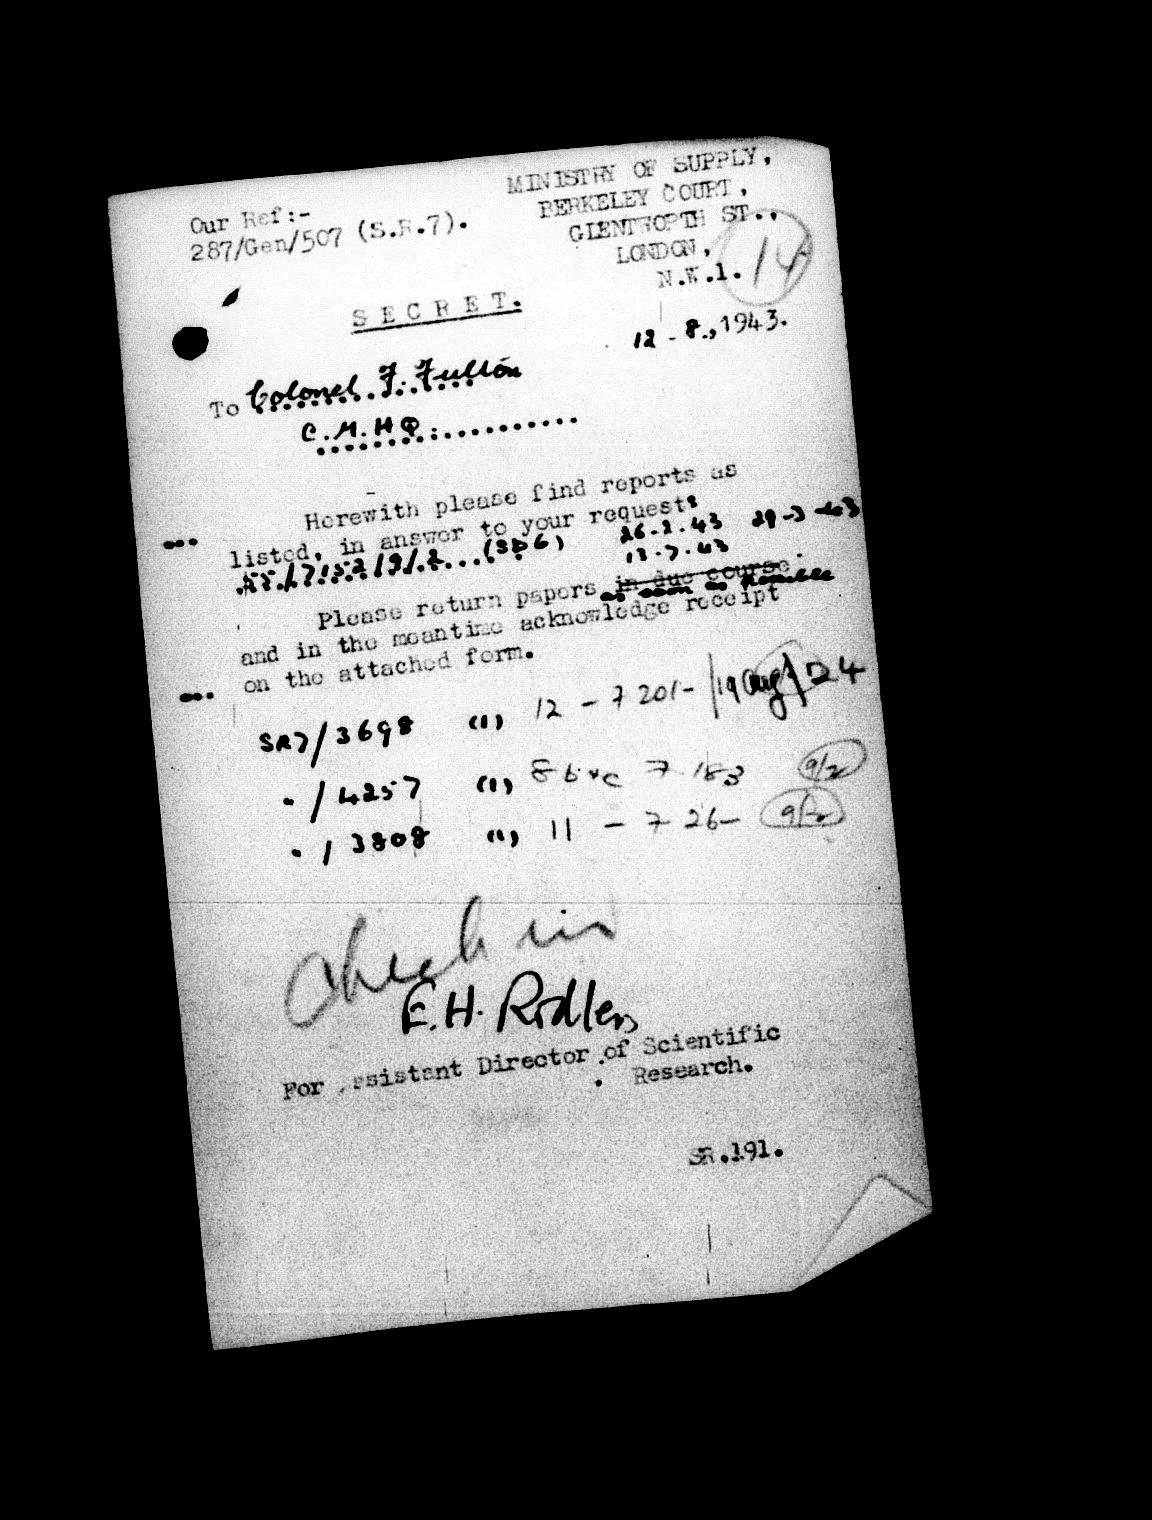 MINISTRY OF SUPPLY,
BERKELEY COURT,
GLENTWORTH ST.,
LONDON,
N.W.1.
14
Our Ref:-
287/Gen/507 (S.R.7).
SECRET.
12 - 8.,1943.
To Colonel F. Fulton
C.M.H.Q.
Herewith please find reports as
listed, in answer to your request:
55/7152/9/2 (SD6) 26-2-43 29-3-43
13-7-43
Please return papers in due course.
as soon as possible
and in the meantime acknowledge receipt
on the attached form.
SR7/3698 (1) 12 - 7 201- /19 Aug/ D24
" /4257 (1) 8 b+c 7 183 9/2
" /3808 (1) 11 - 7 26-
E.H. Ridler
For Assistant Director of Scientific
Research.
SR.191.